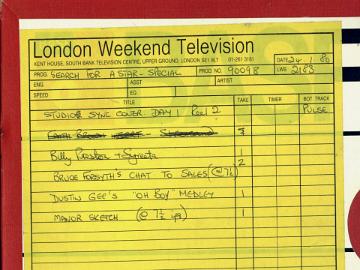 London Weekend Television
KENT HOUSE, SOUTH BANK TELEVISION CENTRE, UPPER GROUND, LONDON SE1 9LT 01-261 3161 DATE 24.1.80
PROG. SEARCH FOR A STAR - SPECIAL PROG NO. 90098 LINE 2183
ENG. ASST
SPEED EQ. 1
TITLE TAKE TIMER BOT TRACK
STUDIO SYNC COVER DAY 1 Reel 2 PULSE
Billy Preston + Syreeta 1
2
BRUCE FORSYTH'S CHAT TO SALES (@ 7½) 1
DUSTIN GEE'S "OH BOY" MEDLEY 1
MANOR SKETCH (@ 7½ ips) 1